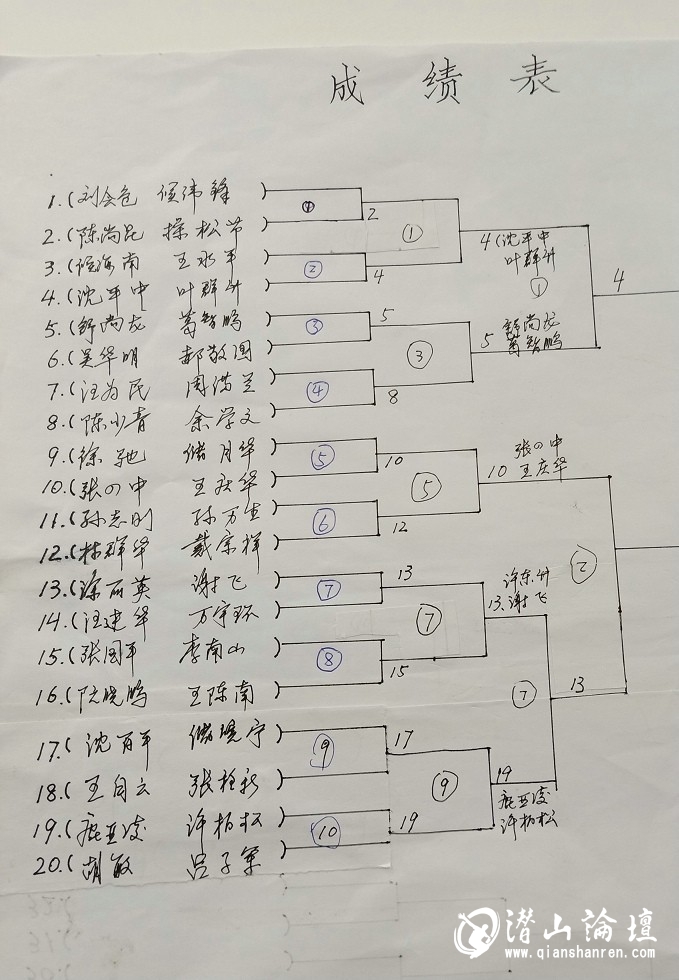 成绩表
1.(刘会仓 侯伟锋)
2.(陈尚昆 操松节)
3.( 海南 王水平)
4.(沈平中 叶群升)
5.(舒尚龙 葛智鹏)
6.(吴华明 郝敬国)
7.(汪为民 周满兰)
8.(陈少青 余学文)
9.(徐驰 储月华)
10.(张の中 王庆华)
11.(孙志刚 孙万生)
12.(林群华 戴宗祥)
13.(涂丽英 谢飞)
14.(汪建华 万宇环)
15.(张国平 李南山)
16.(阮晓鹏 王陈南)
17.(沈百平 储晓宁)
18.(王自云 张栓新)
19.(鹿亚凌 许柏松)
20.(胡敏 吕子军)
② ③ ④ ⑤ ⑥ ⑦ ⑧ ⑨ ⑩
2
4
5
8
10
12
13
15
17
19
① ③ ⑤ ⑦ ⑨
4(沈平中
叶群升
①
5 舒尚龙
葛智鹏
10 张の中
王庆华
13. 许东升
谢飞
19
鹿亚凌
许柏松
⑦
4
13
②
潜山論壇
www.qianshanren.com